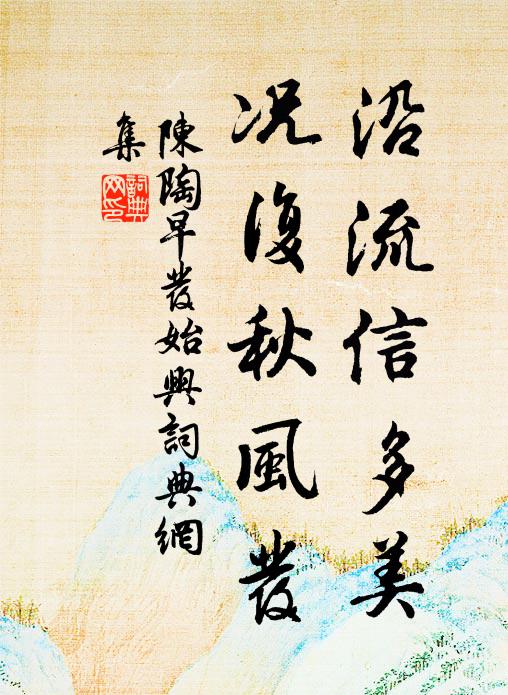 沿流信多美
況復秋風發
陳陶早發始興詞典網
集
詞典
网印